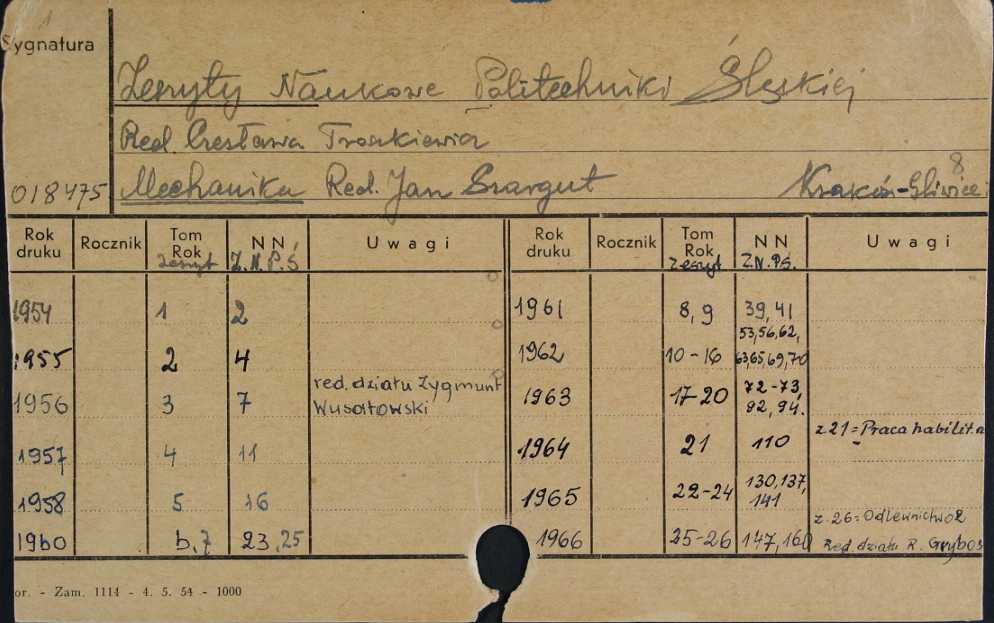 1
Sygnatura
Zeszyty Naukowe Politechniki Śląskiej
Red. Czesława Troszkiewicz
018475 Mechanika Red. Jan Szargut Kraków-Gliwice 8
Rok druku Rocznik Tom Rok Zeszyt N N Z.N.P.Ś Uwagi Rok druku Rocznik Tom Rok Zeszyt N N Z.N.P.Ś. Uwagi
1954 1 2 1961 8,9 39,41
1955 2 4 1962 10-16 53,56,62, 63,65,69,70
1956 3 7 red. działu Zygmunt Wusatowski 1963 17-20 72-73, 92, 94.
1957 4 11 1964 21 110 z 21 = Praca habilit.a
1958 5 16 1965 22-24 130,137, 141
1960 6,7 23,25 1966 25-26 147,160 z. 26 = Odlewnictwo 2 Red. działu R. Gryboś
or. - Zam. 1114 - 4. 5. 54 - 1000